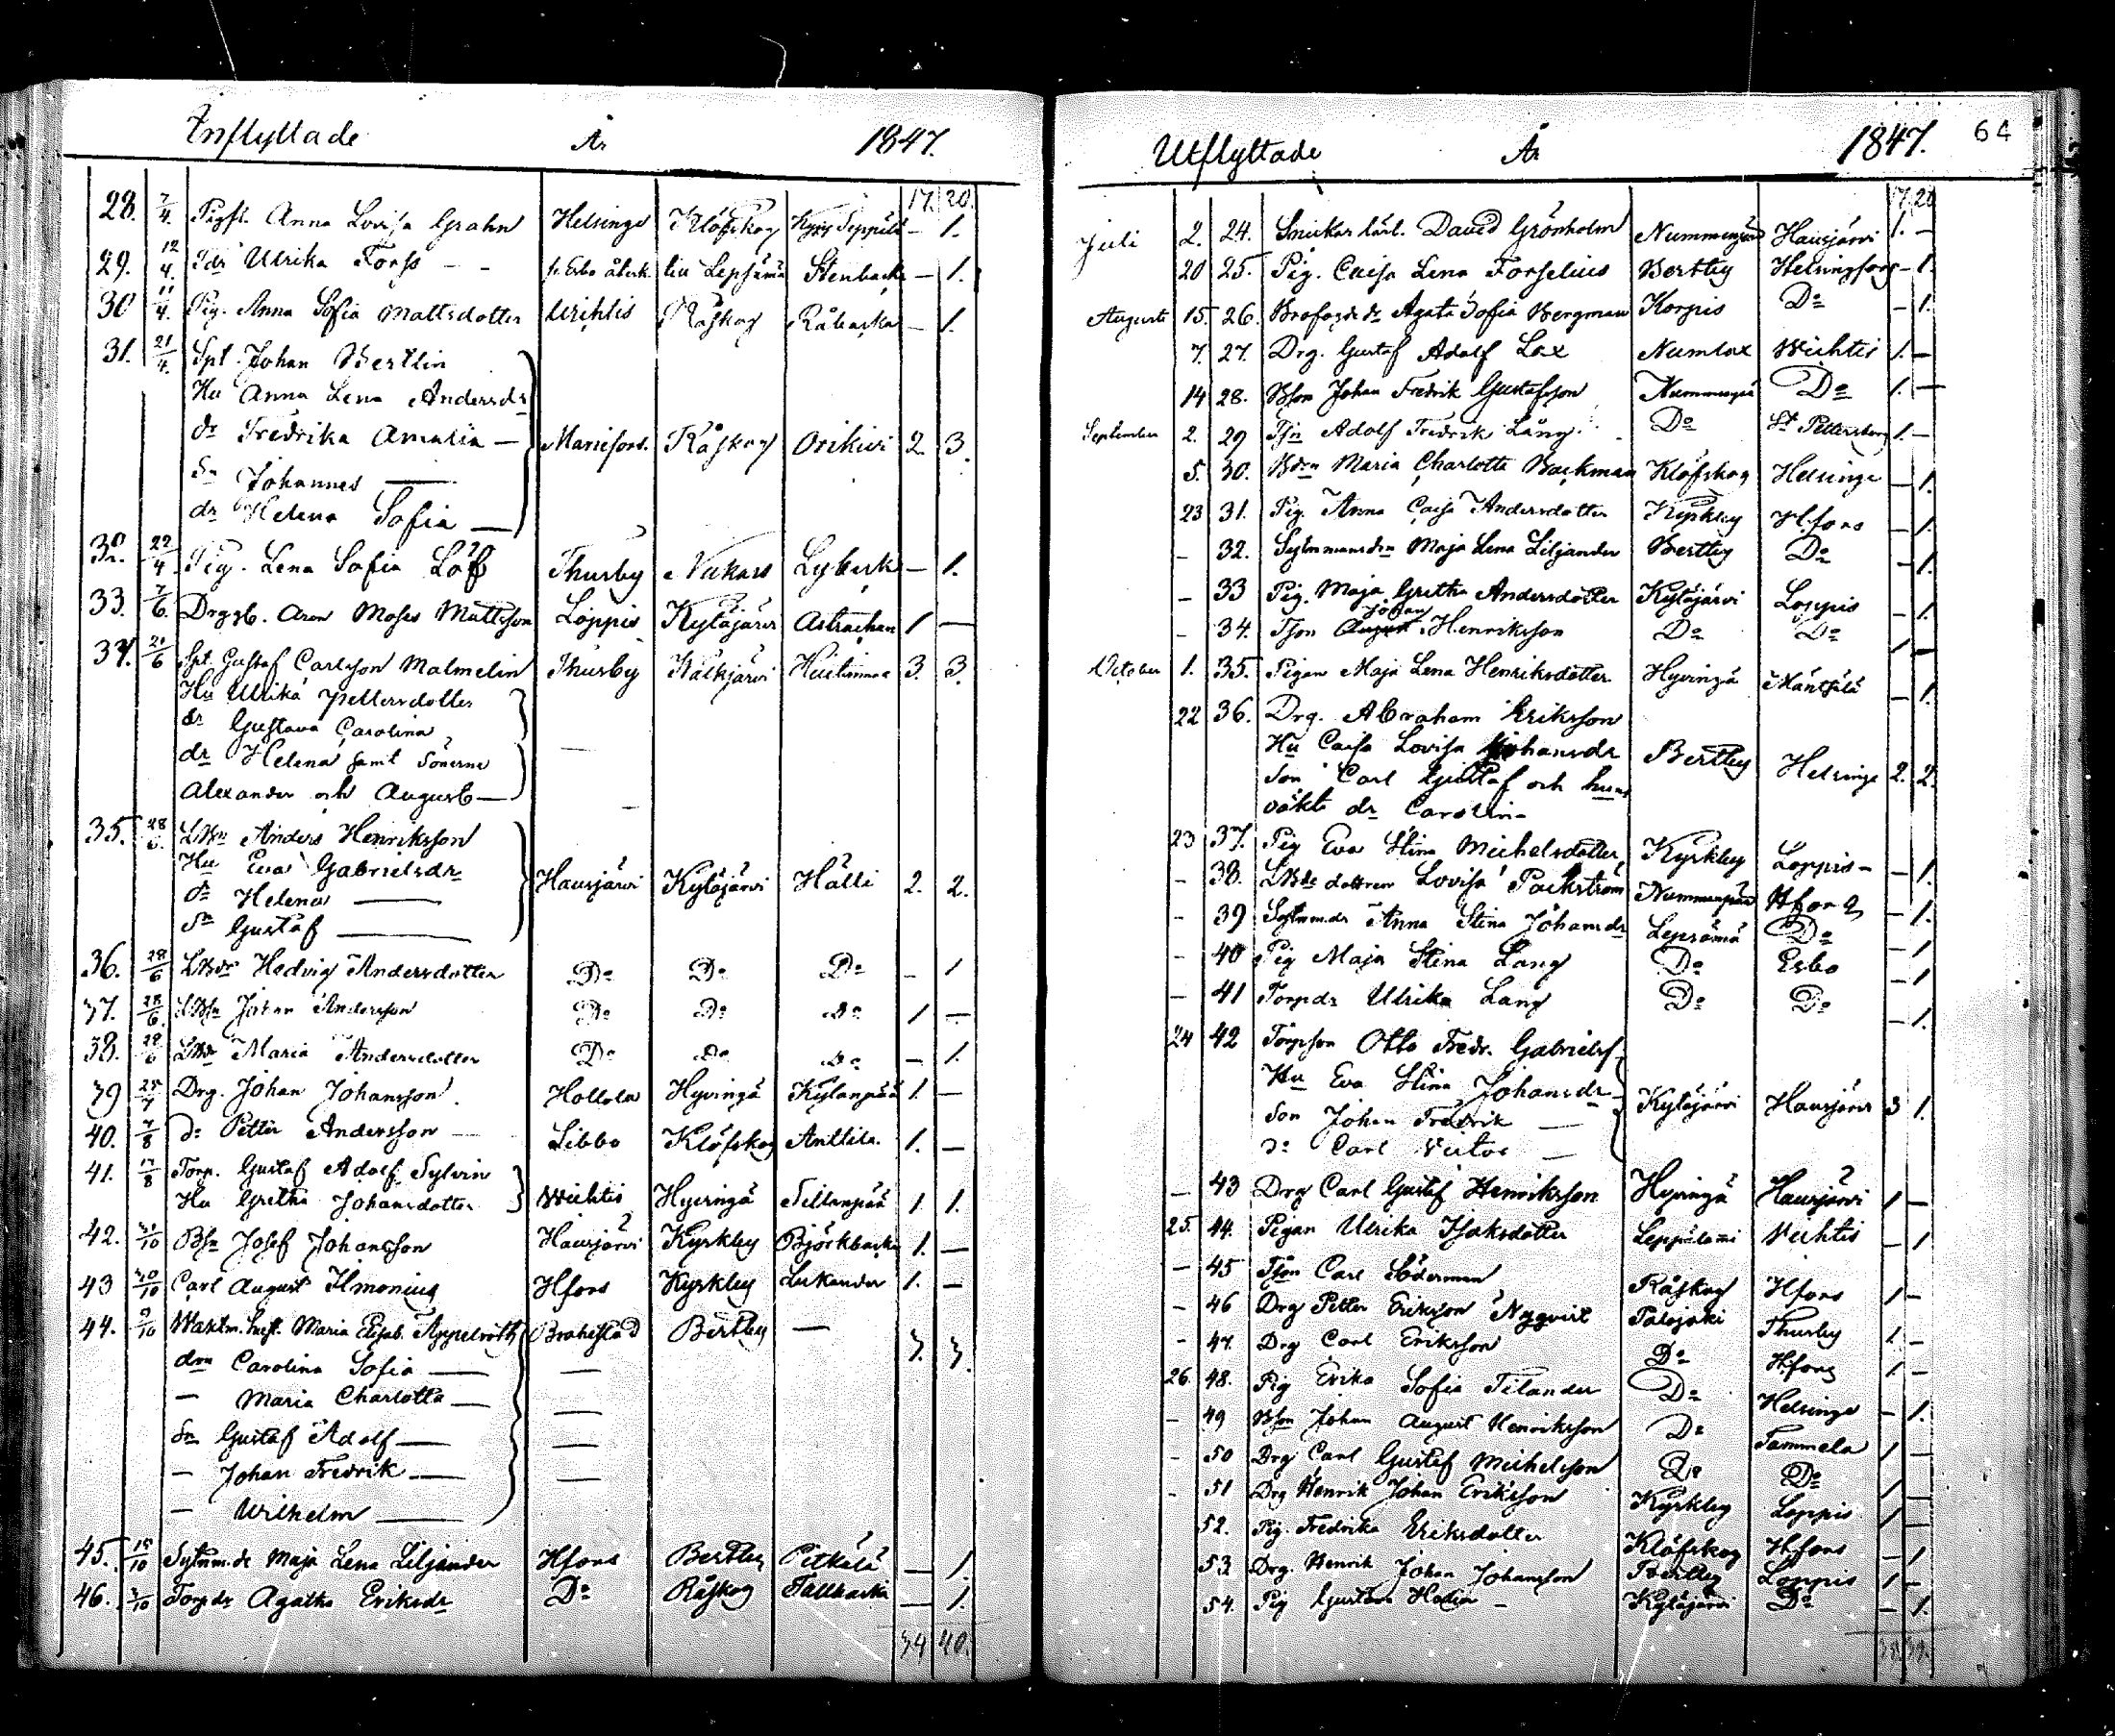 Inflyttade År 1847.
17. 20.
28. 7/4. Pigfl. Anna Lovisa Grahn Helsinge Klöfskog Seppälä – 1.
29. 12/4. Tdr Ulrika Forss – – fr. Esbo återk. Lepsämä Stenbacka – 1.
30 11/4. Pig. Anna Sofia Mattsdotter Wichtis Råskog Råbacka – 1.
31. 21/4. Spt. Johan Bertlin
Hu Anna Lena Andersdr
dr Fredrika Amalia — Mariefors. Råskog Orikivi 2. 3.
Sn Johannes —
dr Helena Sofia —
32. 22/4 Pig. Lena Sofia Löf Thusby Nukars Lybeck – 1.
33. 7/6. Drgg. Aron Moses Mattsson Loppis Kytäjärvi Astrachan 1 —
34. 20/6 Spt. Gustaf Carlsson Malmelin Thusby Kalkjärvi 3. 3.
Hu Ulrika Pettersdotter
dr Gustava Carolina
dr Helena samt Sönerne —
Alexander och August — –
35. 28/6. LBn Anders Henriksson
Hu Eva Gabrielsdr
dr Helena — Hausjärvi Kytäjärvi Hälli 2. 2.
Sn Gustaf —
36. 28/6 LBdr Hedvig Andersdotter Do Do Do – 1
37. 28/6. LBsn Johan Andersson Do Do Do 1 –
38. 28/6 LBdr Maria Andersdotter Do Do Do – 1.
39 25/7 Drg. Johan Johansson Hollola Hyvingä Kylänpää 1. –
40. 7/8 Do Petter Andersson Libbo Klöfskog Anttila. 1. –
41. 17/8 Torp. Gustaf Adolf Sylvin
Hu Gretha Johansdotter Wichtis Hyvingä Sillanpää 1. 1.
42. 31/10 Bsn Josef Johansson Hausjärvi Kyrkby Björkbacka 1. –
43 30/10 Carl August Ilmonius Hfors Kyrkby Lukander 1. –
44. 9/10 Waktm. hust. Maria Elisab. Appelroth Brahestad Bertby — 3. 3.
drn Carolina Sofia — —
– Maria Charlotta — —
Sn Gustaf Adolf — —
– Johan Fredrik — —
– Wilhelm —
45. 15/10 Sytnm.dr Maja Lena Liljander Hfors Bertby Pitkälä – 1.
46. 3/10 Torpdr Agatha Eriksdr Do Råskog Tallbacka – 1.
34 40.
Utflyttade År 1847. 64
17. 20
Juli 2. 24. Snickar lärl. David Grönholm Nummenpää Hausjärvi 1. –
20 25. Pig. Caisa Lena Forselius Bertby Helsingfors – 1.
Augusti 15. 26. Agata Sofia Bergman Korpis Do – 1.
7. 27. Drg. Gustaf Adolf Lax Numlax Wichtis 1. –
14 28. Bson Johan Fredrik Gustafsson Nummenpää Do 1. –
September 2. 29 Tsn Adolf Fredrik Lång Do St Pettersburg 1. –
5. 30. Bdrn Maria Charlotta Backman Klöfskog Helsinge – 1.
23 31. Pig. Anna Caisa Andersdotter Kyrkby Hfors – 1.
– 32. Sytnmansdrn Maja Lena Liljander Bertby Do – 1.
– 33 Pig. Maja Gretha Andersdotter Kytäjärvi Loppis – 1.
Johan
– 34. Tson August Henriksson Do Do 1 –
October 1. 35. Pigan Maja Lena Henriksdotter Hyvingä Mäntsälä – 1.
22 36. Drg. Abraham Eriksson
Hu Caisa Lovisa Johansdr
Son Carl Gustaf och hans Bertby Helsinge 2. 2.
oäkt dr Carolin-
23 37. Pig Eva Stina Michelsdotter Kyrkby Loppis – – 1.
– 38. LBdr dottren Lovisa Päckström Nummenpää Hfors – 1.
– 39 Sytnm.dr Anna Stina Johansdr Lepsämä Do – 1
– 40 Pig Maja Stina Lang Do Esbo – 1
– 41 Torpdr Ulrika Lang Do Do – 1.
24 42 Torpson Otto Fredr. Gabrielss
Hu Eva Stina Johansdr
Son Johan Fredrik — Kytäjärvi Hausjärvi 3 1.
Do Carl Victor —
– 43 Drg Carl Gustaf Henriksson Hyvingä Hausjärvi 1 –
25. 44. Pigan Ulrika Isaksdotter Leppälami Wichtis – 1
– 45 Tson Carl Söderman Råskog Hfors 1 –
– 46 Drg Petter Eriksson Nyqvist Palojoki Thusby 1 –
– 47. Drg Carl Eriksson Do Hfors 1 –
26. 48. Pig Erika Sofia Tilander Do Helsinge – 1.
– 49 Bson Johan August Henriksson Do Tammela 1 –
– 50 Drg Carl Gustaf Michelsson Do Do 1 –
– 51 Drg Henrik Johan Eriksson Kyrkby Loppis 1 –
52. Pig. Fredrika Eriksdotter Klöfskog Hfors – 1
53 Drg. Henrik Johan Johansson Bertby Loppis 1 –
54. Pig Gustava Hedin – Kytäjärvi Do – 1.